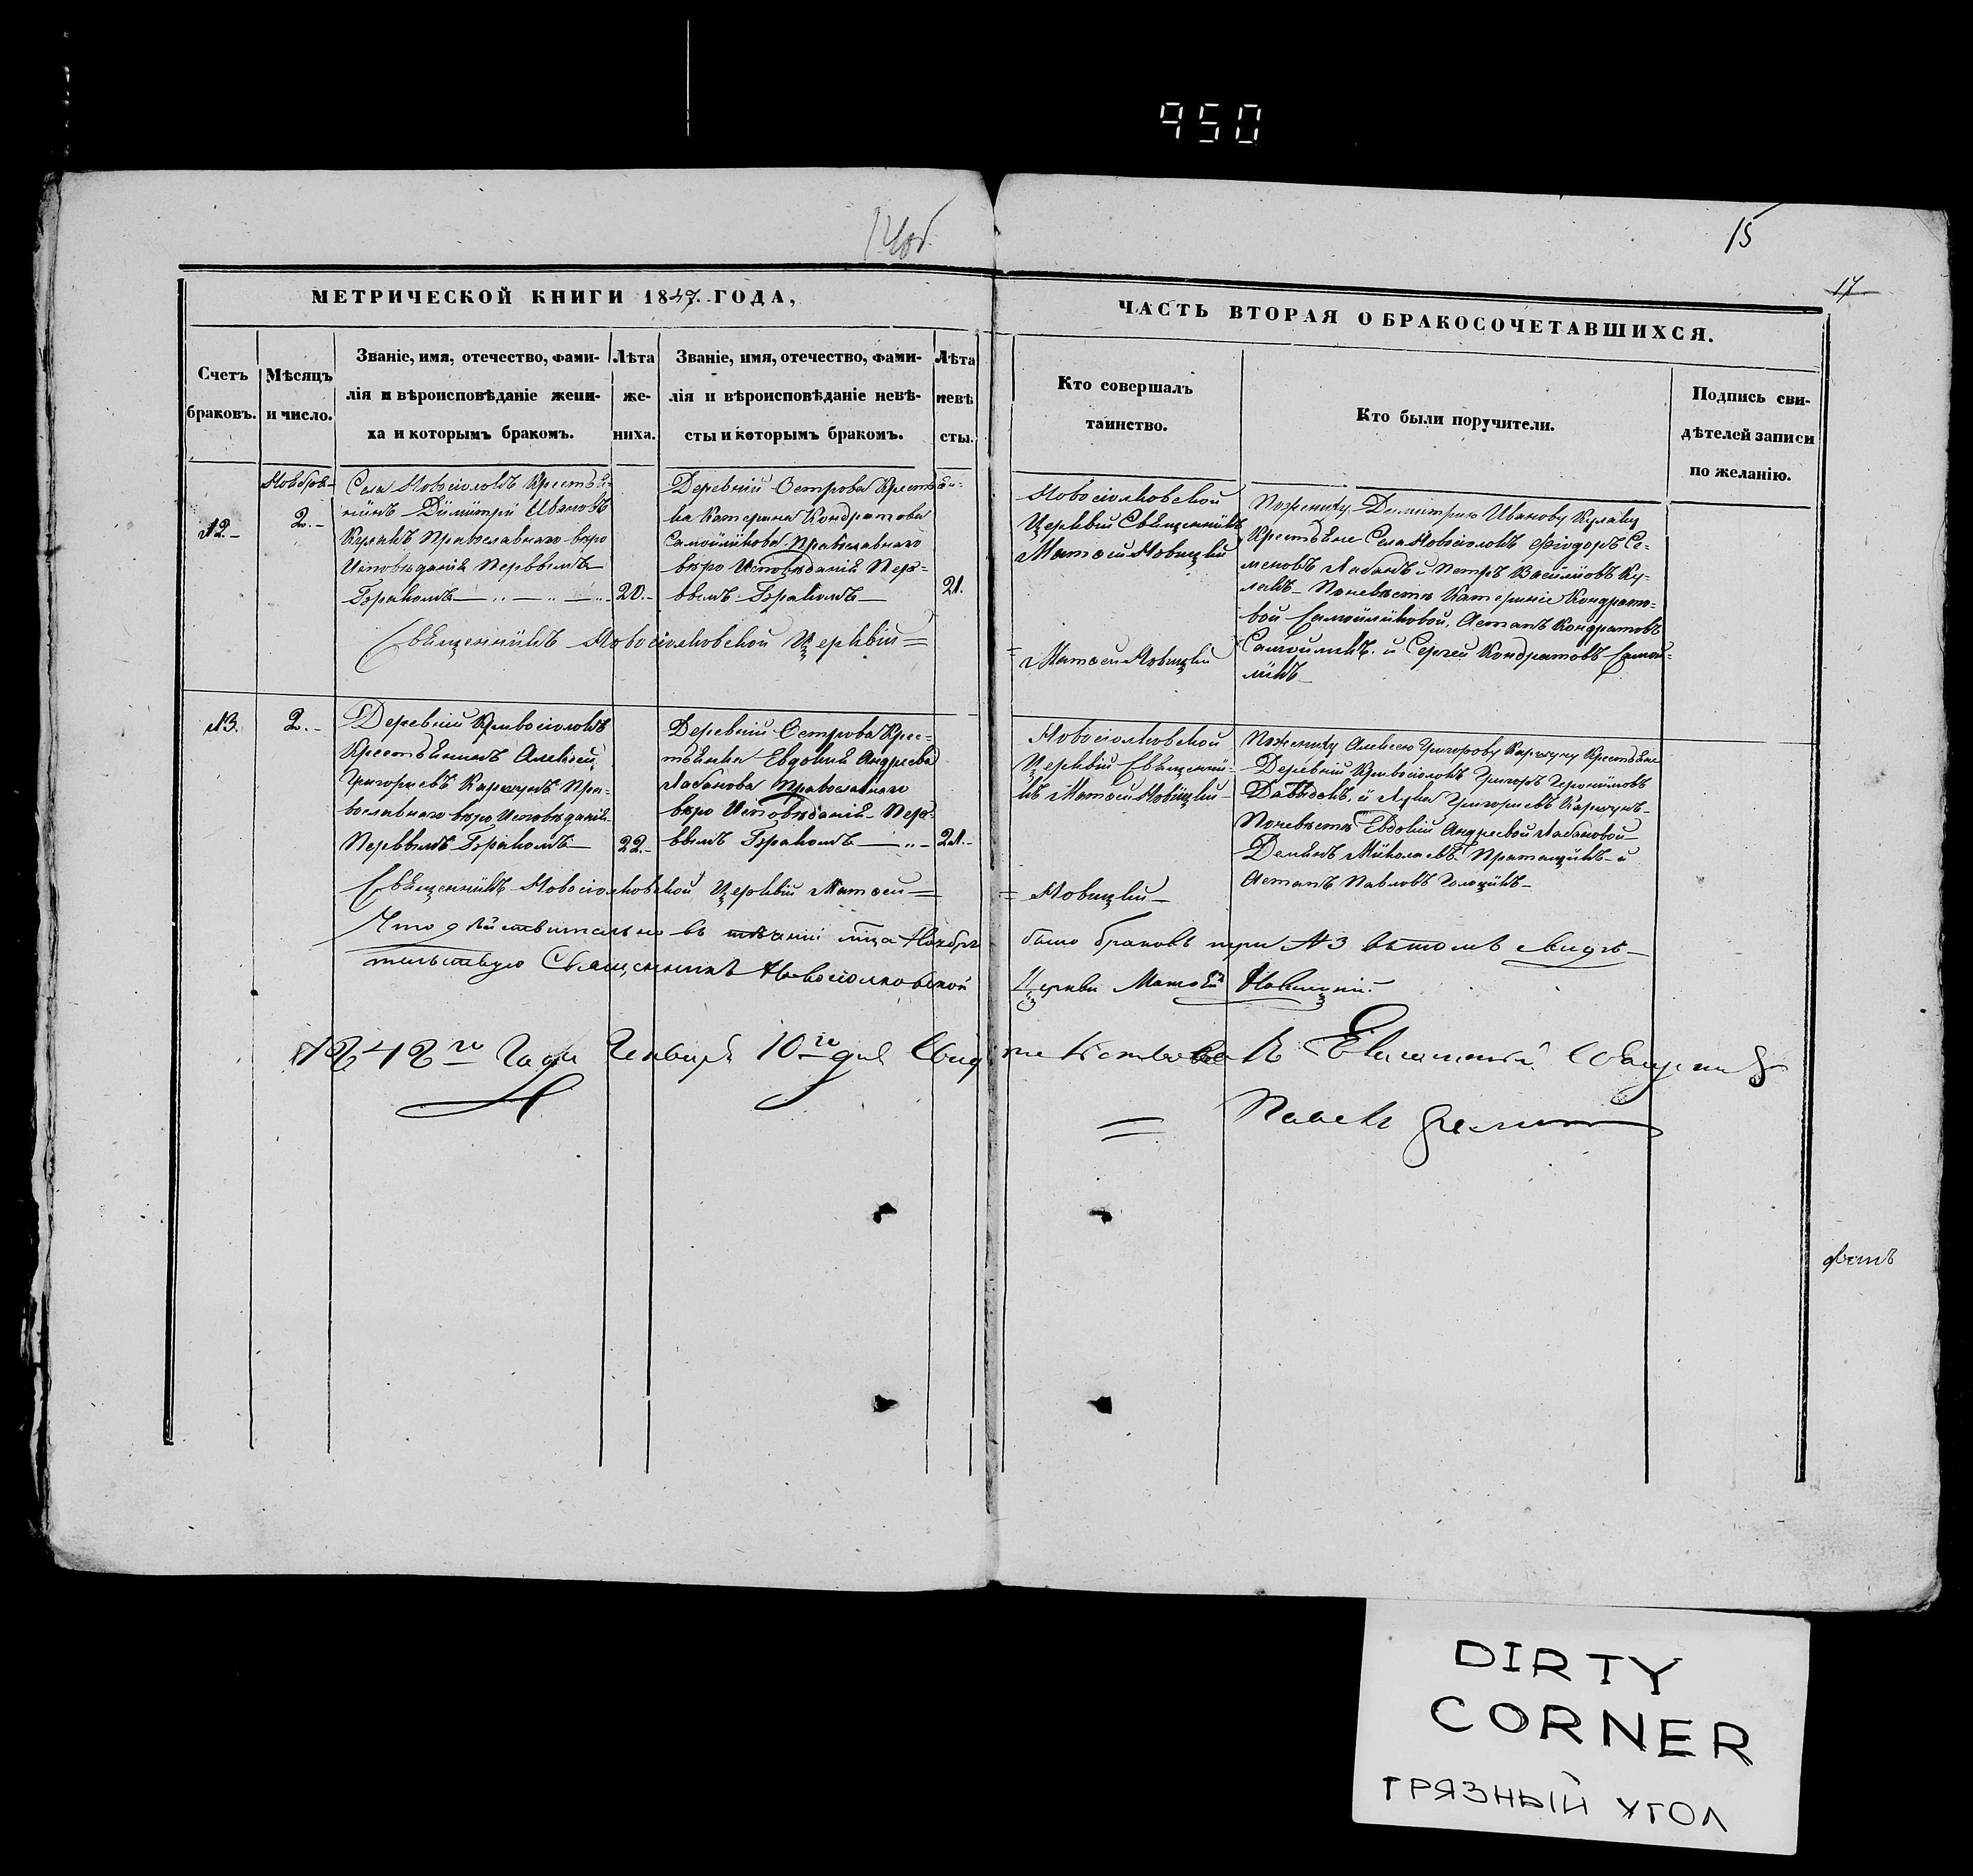 950
14об.
15
17
МЕТРИЧЕСКОЙ КНИГИ 1847. ГОДА,
ЧАСТЬ ВТОРАЯ О БРАКОСОЧЕТАВШИХСЯ.
Счетъ
браковъ.
Мѣсяцъ
и число.
Званіе, имя, отечество, фами-
лія и вѣроисповѣданіе жени-
ха и которымъ бракомъ.
Лѣта
же-
ниха.
Званіе, имя, отечество, фами-
лія и вѣроисповѣданіе невѣ-
сты и которымъ бракомъ.
Лѣта
невѣ
сты.
Кто совершалъ
таинство.
Кто были поручители.
Подпись сви-
дѣтелей записи
по желанію.
№2.-
2.-
Села Новосіолокъ Крестья-
нинъ Димитрій Ивановъ
Кулакъ Православнаго вѣро
Исповѣданія Первымъ
Бракомъ
20.-
Деревни Острова Крестьян-
ка Катерина Кондратова
Самойликова Православнаго
вѣро Исповѣданія Пер-
вымъ Бракомъ
21.
Новосіолковской
Церквіи Священникъ
Матөей Новицкій
По жениху Димитрію Иванову Кулаку
Крестьяне Села Новосіолокъ Ѳіодоръ Се-
меновъ Лабанъ и Петръ Василіовъ Ку-
лакъ По невѣсте Катериніе Кондрато-
вой Самойликовой, Астапъ Кондратовъ
Самойликъ и Сергей Кондратовъ Самой-
ликъ
Священникъ Новосіолковской Церквіи =
= Матөей Новицкій
№3.
2.-
Деревни Кривосіолокъ
Крестьянинъ Алексѣй
Григорьевъ Каршунъ Пра-
вославнаго вѣро Исповѣданія
Первымъ Бракомъ
22.-
Деревни Острова Крес-
тьянка Евдокия Андреева
Лабанова Православнаго
вѣро Исповѣданія Пер-
вымъ Бракомъ
21.-
Новосіолковской
Церквіи Священни-
къ Матөей Новицкій
По жениху Алексею Григорову Каршуну Крестьяне
Деревни Кривосіолокъ Григоръ Геронимовъ
и Лука Григорьевъ Каршунъ
По невѣсте Евдокии Андреевой Лабановой
Миколаевъ и
Астапъ Павловъ
Священникъ Новосіолковской Церквіи Матөей =
= Новицкій
Что дѣйствительно въ мца Ноября было браковъ три №3 въ томъ свидѣ-
тельствую Священникъ Новосіолковской Церкви Матөей Новицкій.
1848го Года Генваря 10го дня
Павелъ
DIRTY
CORNER
ГРЯЗНЫЙ УГОЛ